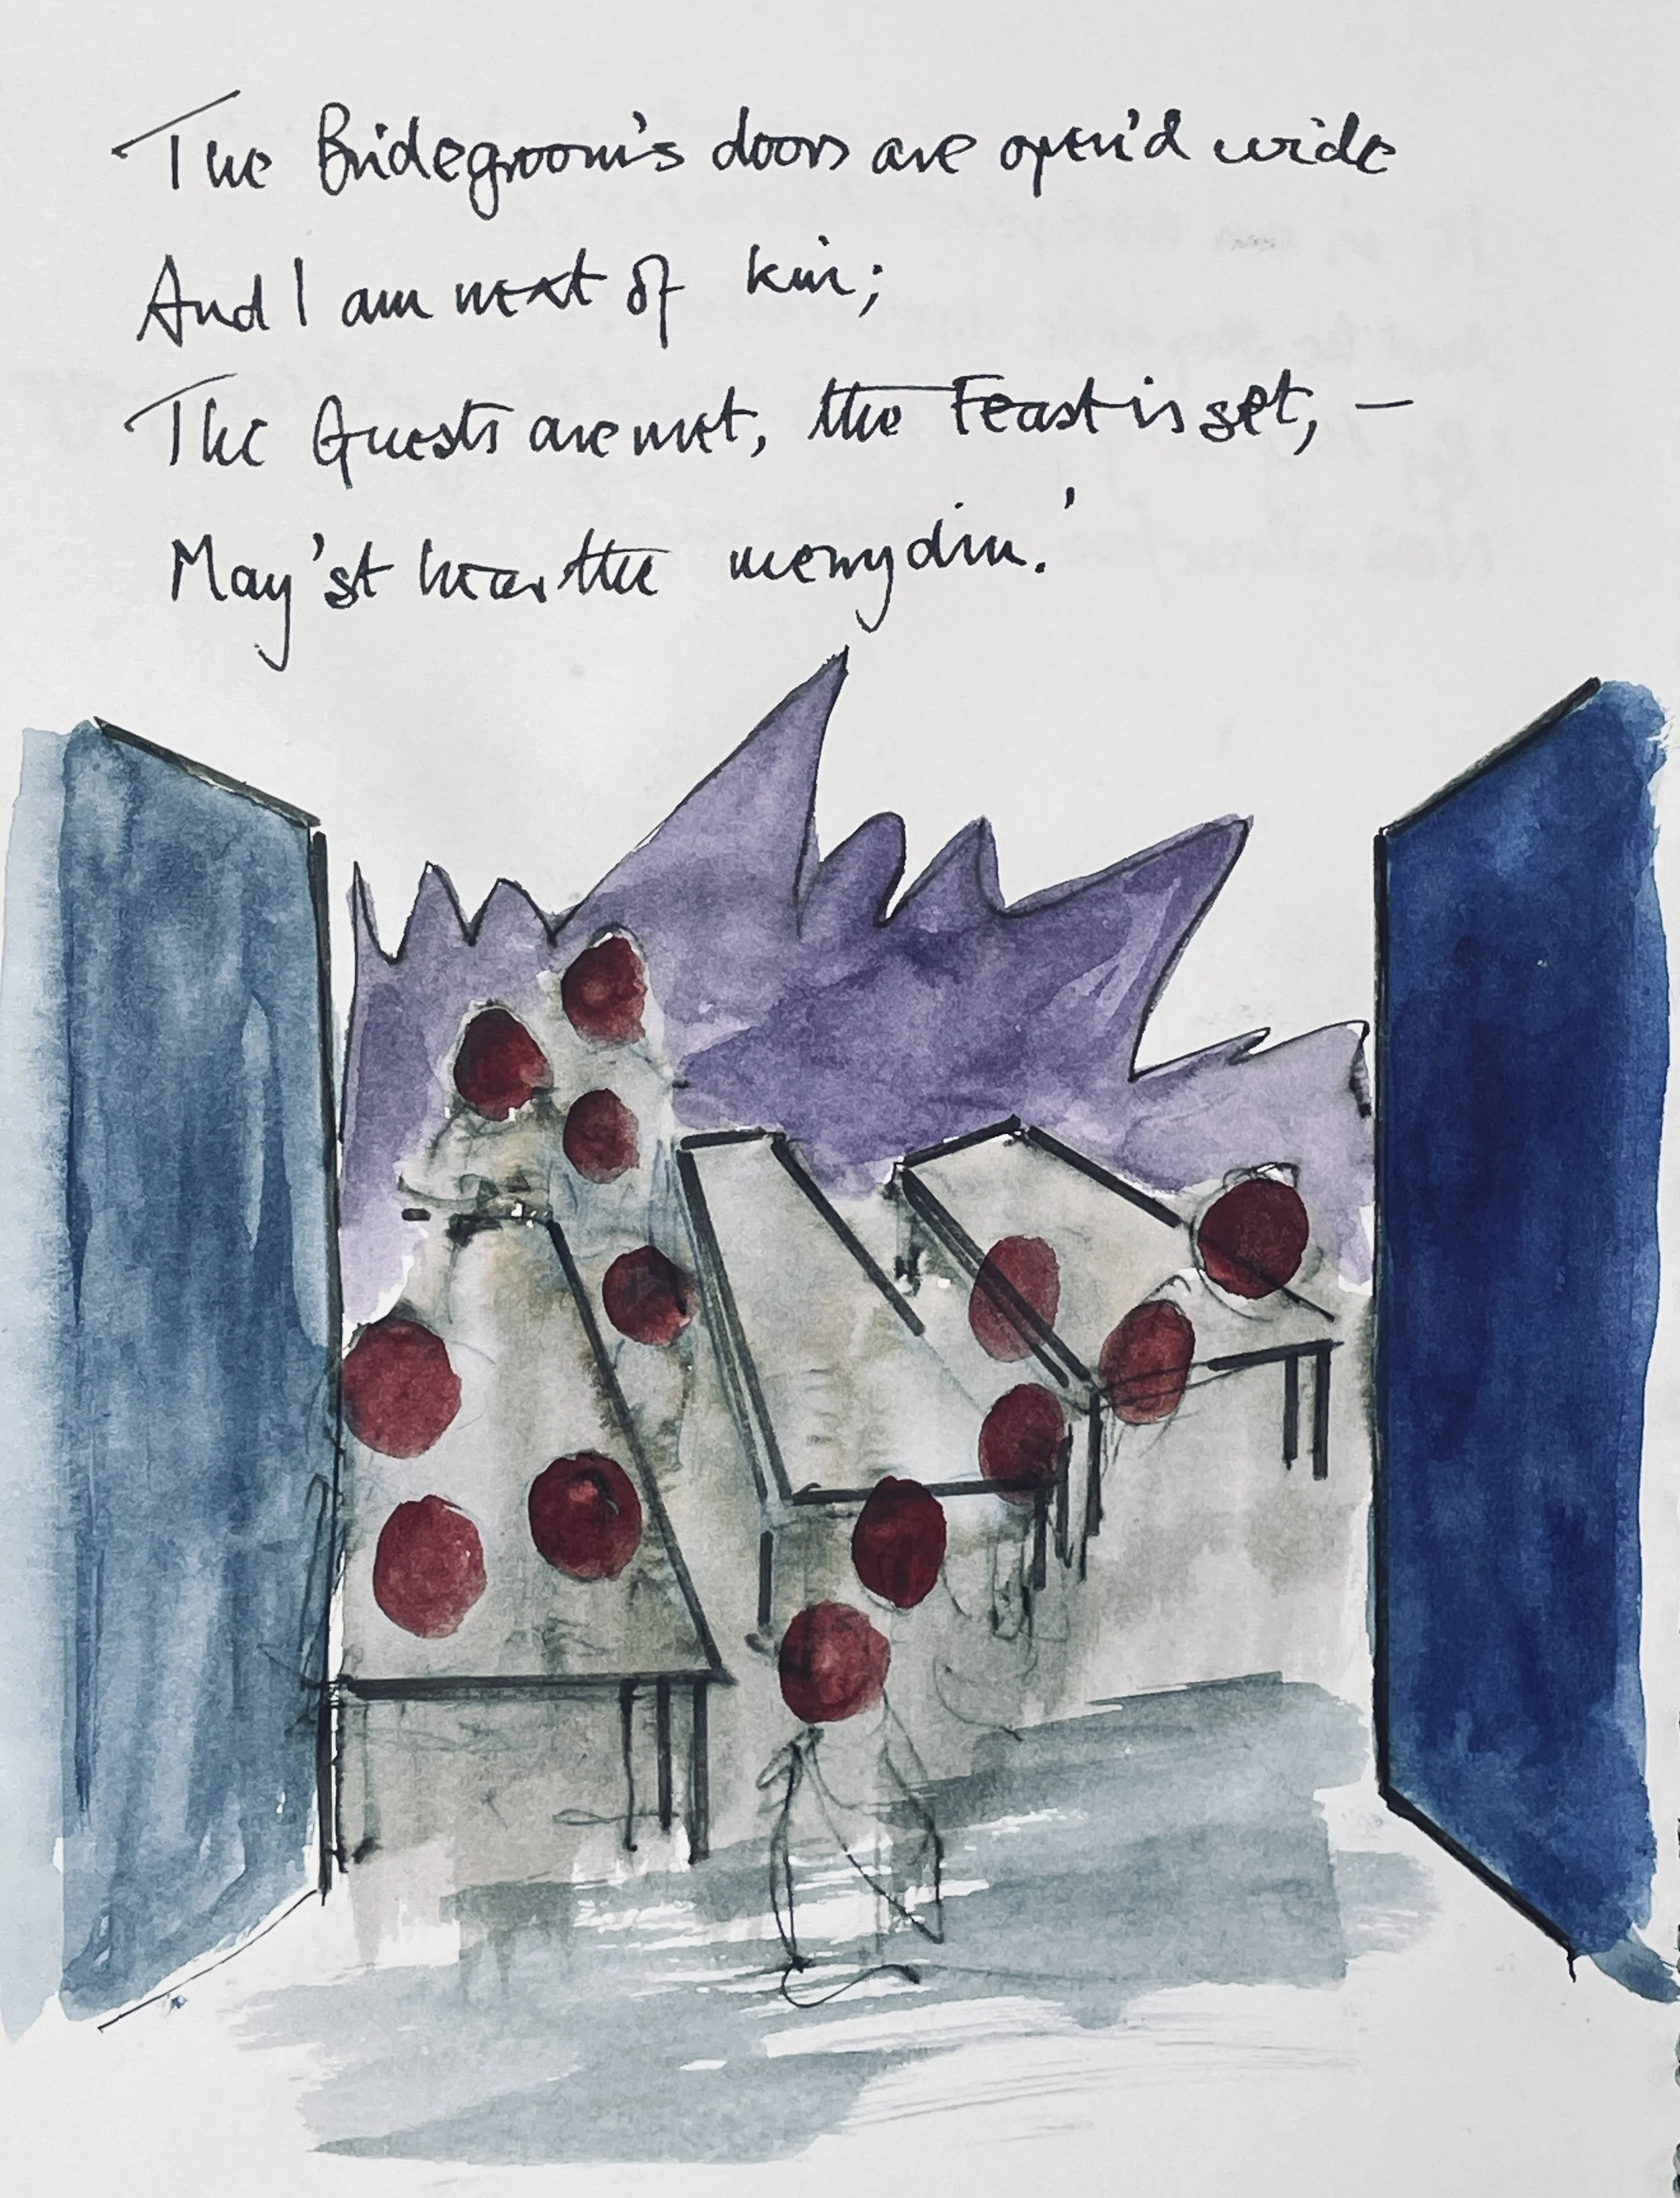 The Bridegroom's doors are open'd wide
And I am next of kin;
The Guests are met, the Feast is set, —
May'st hear the merry din.'